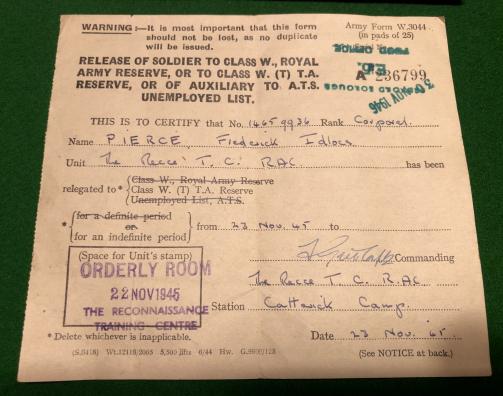 WARNING :—It is most important that this form
should not be lost, as no duplicate
will be issued.
Army Form W.3044
(in pads of 25)
RELEASE OF SOLDIER TO CLASS W., ROYAL
ARMY RESERVE, OR TO CLASS W. (T) T.A.
RESERVE, OR OF AUXILIARY TO A.T.S.
UNEMPLOYED LIST.
FOOD OFFICE
A 236799
BOROUGH
NOV 1946
THIS IS TO CERTIFY that No. 14659936 Rank Corporal
Name PIERCE Frederick Idloes
Unit The Recce T.C. RAC has been
relegated to * Class W., Royal Army Reserve
Class W. (T) T.A. Reserve
Unemployed List, A.T.S.
* for a definite period
or
for an indefinite period
from 23 Nov. 45 to
(Space for Unit's stamp)
Commanding
ORDERLY ROOM
22 NOV 1945
THE RECONNAISSANCE
TRAINING CENTRE
The Recce T.C. RAC
Station Catterick Camp.
* Delete whichever is inapplicable.
Date 23 Nov. 45
(5,500 6/44 Hw.
(See NOTICE at back.)